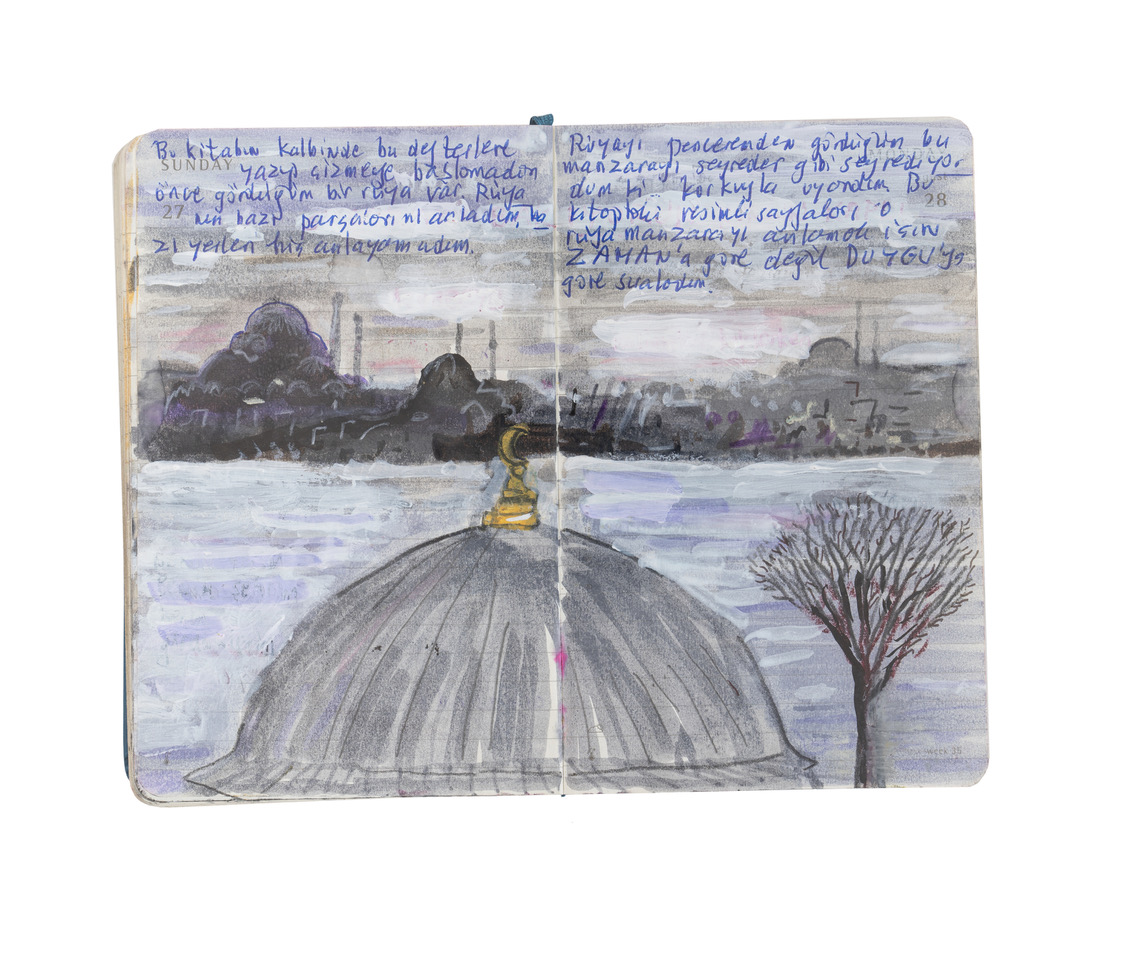 Bu kitabın kalbinde bu defterlere
SUNDAY yazıp çizmeye başlamadan
önce gördüğüm bir rüya var. Rüya
27 nın bazı parçalarını anladım, ba
zı yerleri hiç anlayamadım.
Rüyayı penceremden gördüğüm bu
manzarayı seyreder gibi seyrediyor
dum ki korkuyla uyandım. Bu
28
kitaptaki resimli sayfaları o
rüya manzarayı anlamak için
ZAMAN'a göre değil DUYGU'ya
göre sıraladım.
WEEK 35